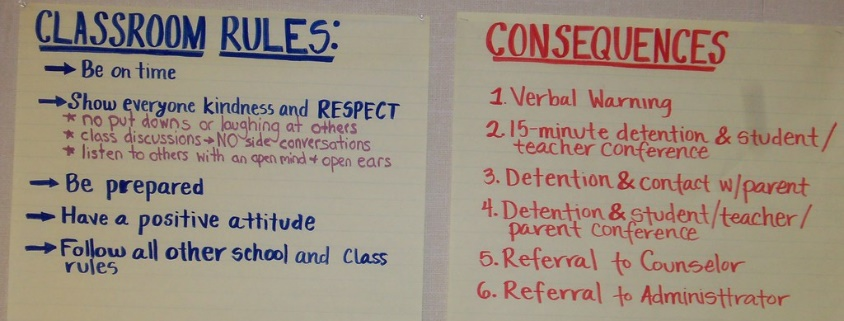 CLASSROOM RULES:
→ Be on time
→ Show everyone kindness and RESPECT
* no put downs or laughing at others
* class discussions → NO side conversations
* listen to others with an open mind + open ears
→ Be prepared
→ Have a positive attitude
→ Follow all other school and Class
rules
CONSEQUENCES
1. Verbal Warning
2. 15-minute detention & student/
teacher conference
3. Detention & contact w/parent
4. Detention & student/teacher/
parent conference
5. Referral to Counselor
6. Referral to Administtrator